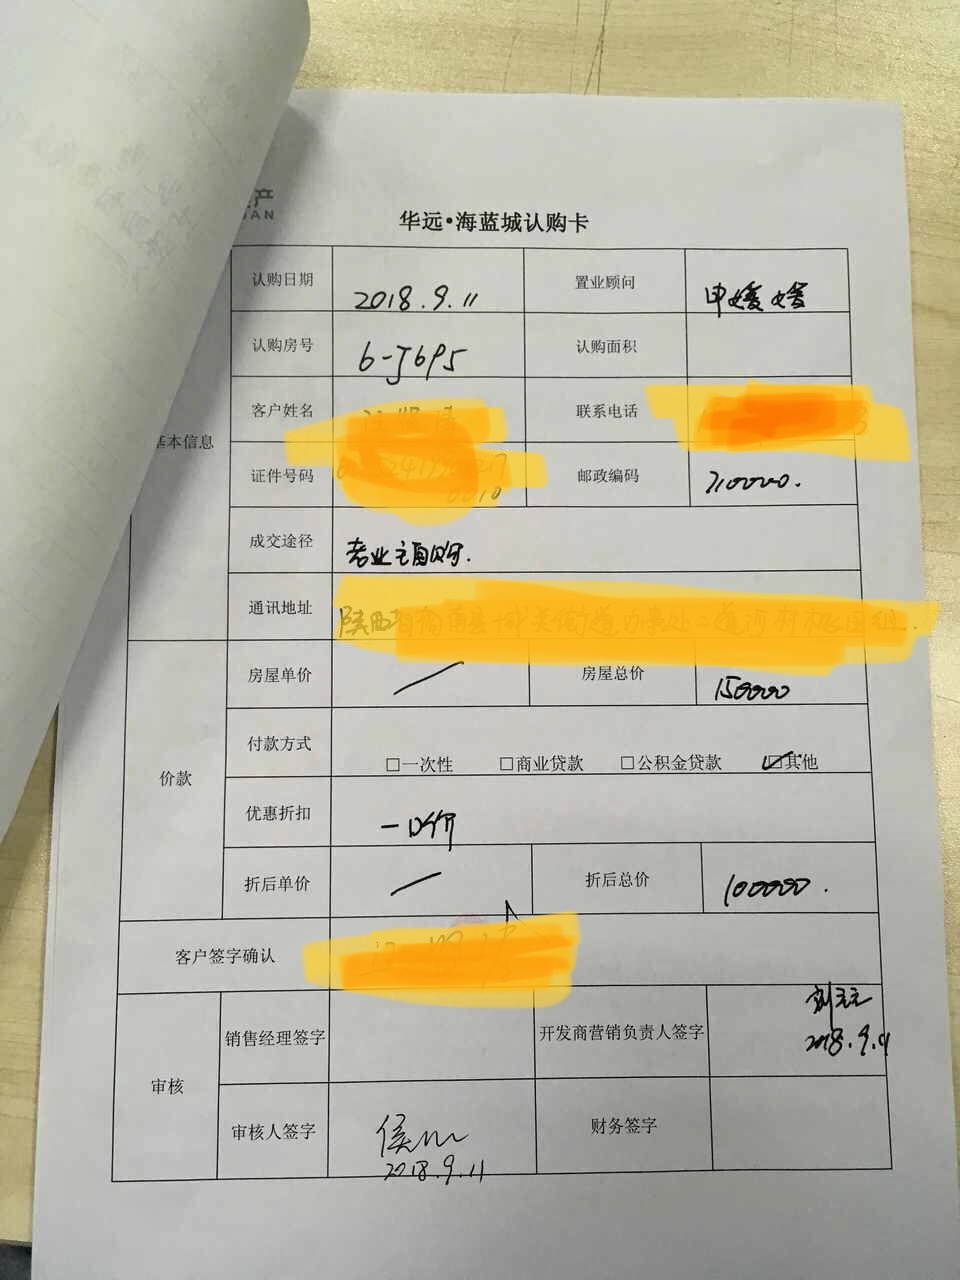 产
华远•海蓝城认购卡
认购日期 2018.9.11 置业顾问 申媛媛
认购房号 6-J695 认购面积
客户姓名 联系电话
基本信息
证件号码 邮政编码 710000.
成交途径
通讯地址 陕西省
房屋单价 房屋总价 150000
付款方式 □一次性 □商业贷款 □公积金贷款 ☑其他
价款
优惠折扣 一口价
折后单价 折后总价 100000.
客户签字确认
销售经理签字 开发商营销负责人签字 2018.9.11
审核
审核人签字 侯 财务签字
2018.9.11